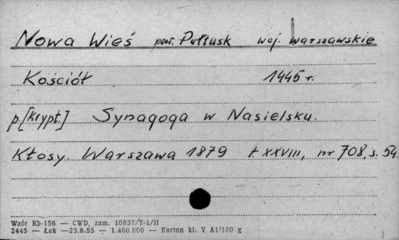 Nowa Wieś pow. Pułtusk woj. Warszawskie
Kościół 1445 r.
p[krypt.] Synagoga w Nasielsku.
Kłosy. Warszawa 1879 t XXVIII, nr 708, s. 54.
Wzór Kb-156 — CWD, zam. 10837/T-1/II
2445 — Łsk —23.8.55 — 1.460.000 — Karton kl. V A1/180 g